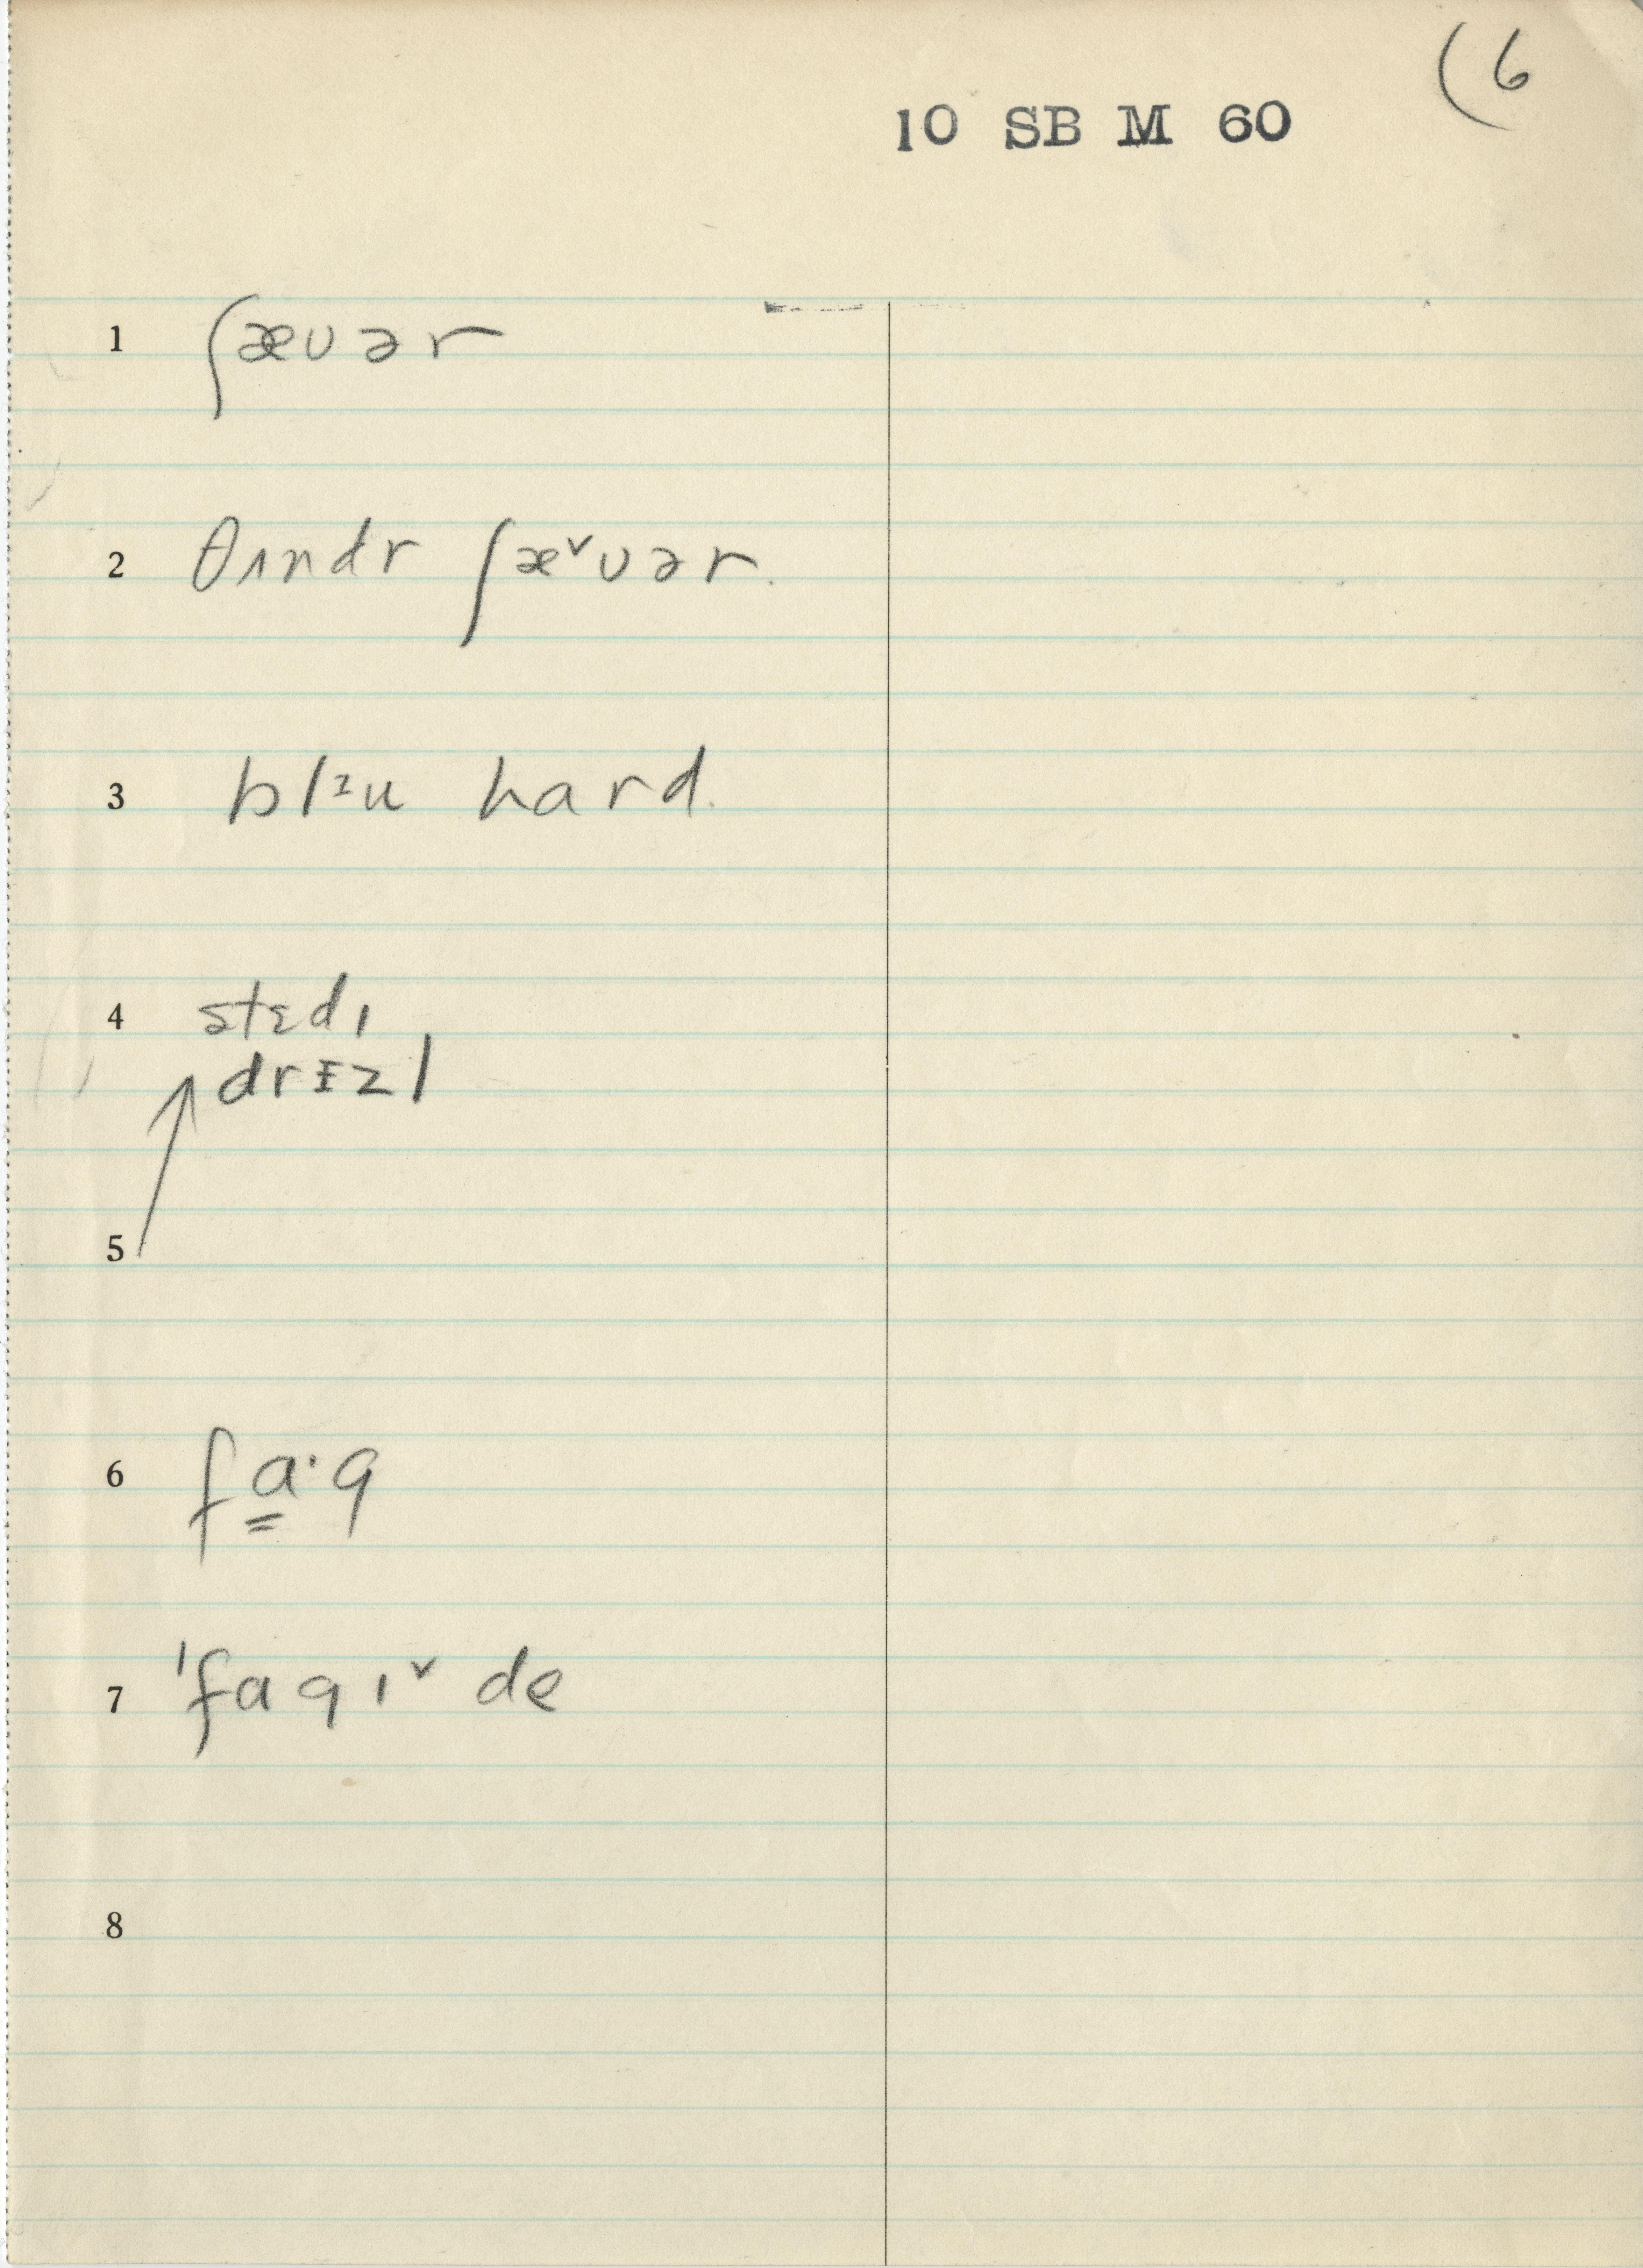 (6
10 SB M 60
1 ʃæʊər
2 θʌndr ʃæ˅ʊər.
3 blɪu hard.
4 stɛdɪ
drɪzl
5
6 fa̳·g
7 ˈfagɪ˅ de
8